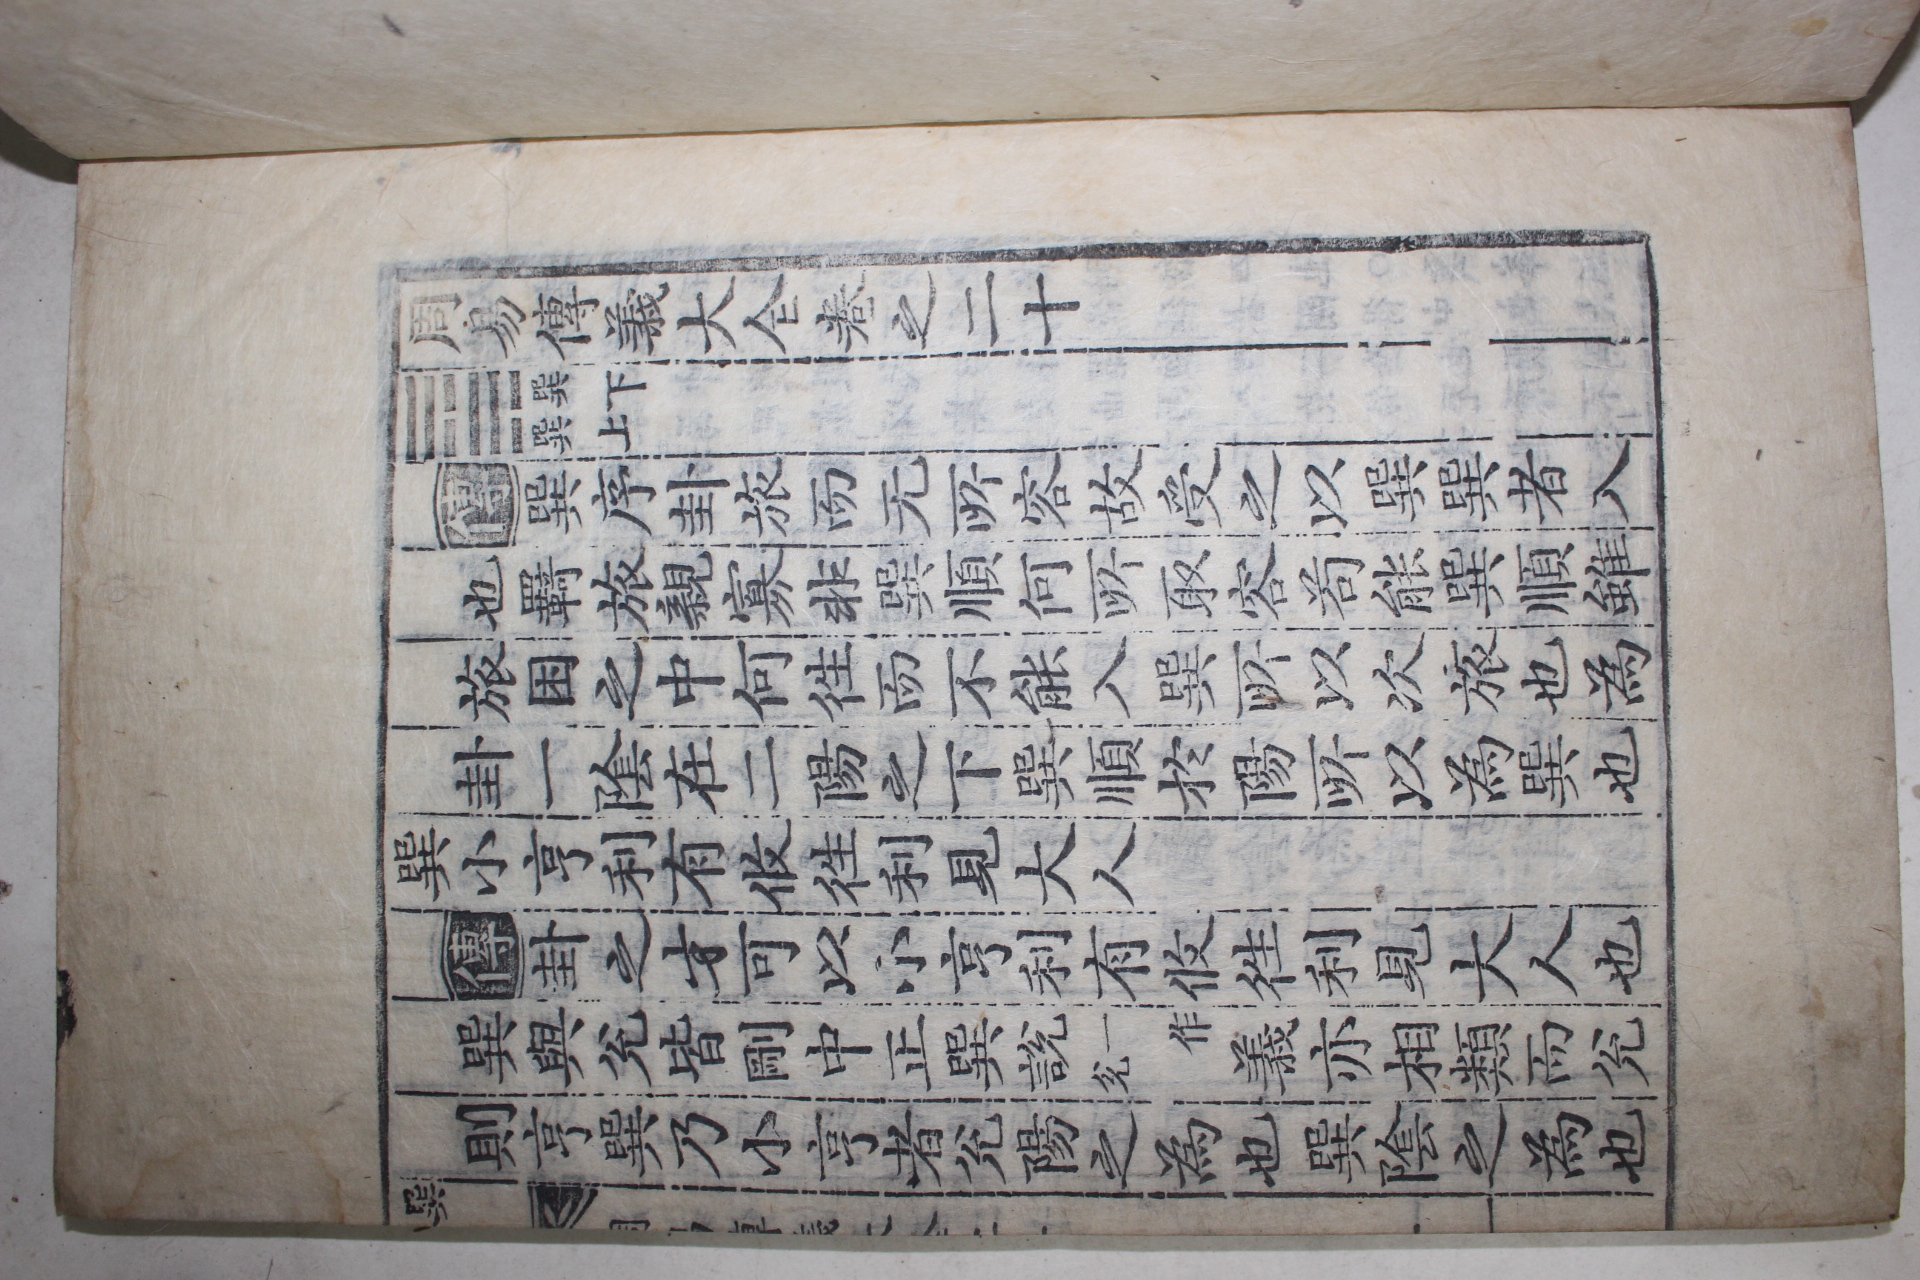 周易傳義大仝卷之二十
巽下
巽上
傳巽序卦旅而无所容故受之以巽巽者入
也羇旅親寡非巽順何所取容苟能巽順雖
旅困之中何徃而不能入巽所以次旅也為
卦一陰在二陽之下巽順於陽所以為巽也
巽小亨利有攸徃利見大人
傳卦之才可以小亨利有攸徃利見大人也
巽與兊皆剛中正巽說一作兊義亦相類而兊
則亨巽乃小亨者兊陽之為也巽陰之為也
巽